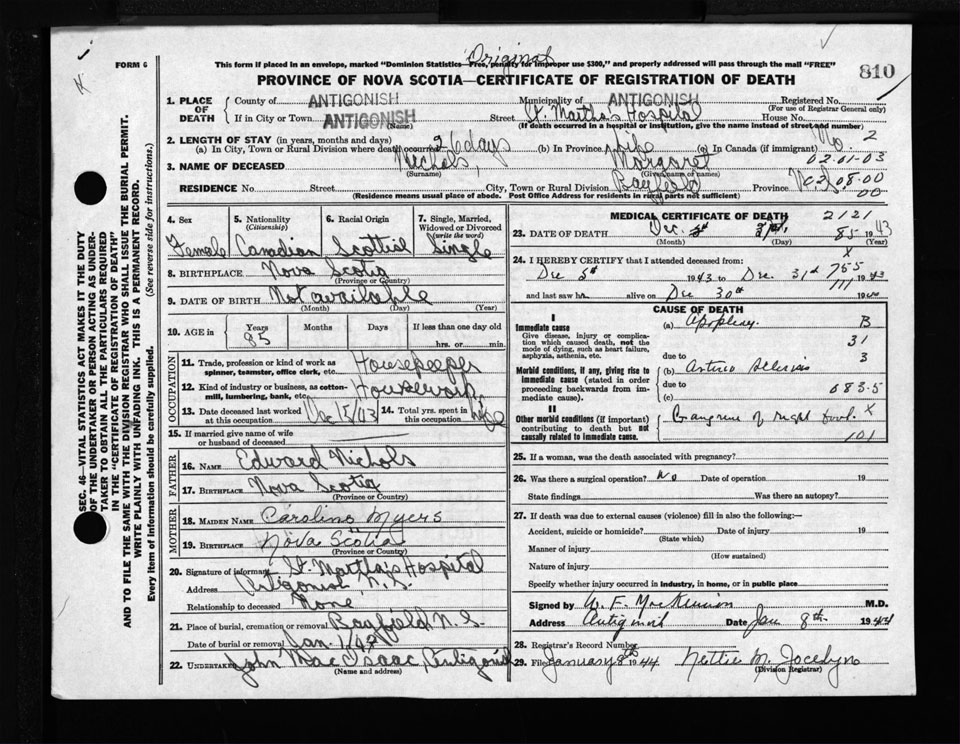 Original
FORM 6 This form if placed in an envelope, marked "Dominion Statistics—Free, penalty for improper use $300," and properly addressed will pass through the mail "FREE"
810
PROVINCE OF NOVA SCOTIA—CERTIFICATE OF REGISTRATION OF DEATH
1. PLACE OF DEATH County of ANTIGONISH Municipality of ANTIGONISH Registered No.
(For use of Registrar General only)
If in City or Town ANTIGONISH Street St. Martha's Hospital House No.
(Name) (If death occurred in a hospital or institution, give the name instead of street and number)
2. LENGTH OF STAY (in years, months and days)
(a) In City, Town or Rural Division where death occurred 26 days (b) In Province Life (c) In Canada (if immigrant)
3. NAME OF DECEASED Nichols, Margaret 02.01-03
(Surname) (Given name or names)
RESIDENCE No. Street City, Town or Rural Division Bayfield Province N.S.
02 08.00
00
(Residence means usual place of abode. Post Office Address for residents in rural parts not sufficient)
4. Sex 5. Nationality (Citizenship) 6. Racial Origin 7. Single, Married, Widowed or Divorced (write the word)
Female Canadian Scottish Single
8. BIRTHPLACE Nova Scotia
(Province or Country)
9. DATE OF BIRTH Not available
(Month) (Day) (Year)
10. AGE in Years Months Days If less than one day old
85 hrs. or min.
OCCUPATION
11. Trade, profession or kind of work as spinner, teamster, office clerk, etc. Housekeeper
12. Kind of industry or business, as cotton-mill, lumbering, bank, etc. Housework
13. Date deceased last worked at this occupation Dec 5/43 14. Total yrs. spent in this occupation Life
15. If married give name of wife or husband of deceased
FATHER
16. NAME Edward Nichols
17. BIRTHPLACE Nova Scotia
(Province or Country)
MOTHER
18. MAIDEN NAME Caroline Myers
19. BIRTHPLACE Nova Scotia
(Province or Country)
20. Signature of informant St. Martha's Hospital
Address Antigonish, N.S.
Relationship to deceased None
21. Place of burial, cremation or removal Bayfield N.S.
Date of burial or removal Jan. 1/44
22. UNDERTAKER John MacIsaac, Antigonish
(Name and address)
MEDICAL CERTIFICATE OF DEATH 2121
23. DATE OF DEATH Dec. 31st, 1943
85
(Month) (Day) (Year)
24. I HEREBY CERTIFY that I attended deceased from:
x
Dec 5th 1943 to Dec. 31st 1943
755
111
and last saw h alive on Dec 30th 19
CAUSE OF DEATH
I
Immediate cause (a) Apoplexy. B
Give disease, injury or complication which caused death, not the mode of dying, such as heart failure, asphyxia, asthenia, etc.
31
due to 3
Morbid conditions, if any, giving rise to immediate cause (stated in order proceeding backwards from immediate cause). (b) Arterio Sclerosis
due to 083.5
(c)
II
Other morbid conditions (if important) contributing to death but not causally related to immediate cause. Gangrene of right foot. x
101
25. If a woman, was the death associated with pregnancy?
26. Was there a surgical operation? No Date of operation 19
State findings Was there an autopsy?
27. If death was due to external causes (violence) fill in also the following:—
Accident, suicide or homicide? Date of injury 19
(State which)
Manner of injury
(How sustained)
Nature of injury
Specify whether injury occurred in industry, in home, or in public place
Signed by W. F. MacKinnon M.D.
Address Antigonish Date Jan 8th 1944
28. Registrar's Record Number
29. Filed January 8th 1944 Nettie M. Jocelyn
(Division Registrar)
SEC. 46—VITAL STATISTICS ACT MAKES IT THE DUTY
OF THE UNDERTAKER OR PERSON ACTING AS UNDER-
TAKER TO OBTAIN ALL THE PARTICULARS REQUIRED
IN THE "CERTIFICATE OF REGISTRATION OF DEATH"
AND TO FILE THE SAME WITH THE DIVISION REGISTRAR WHO SHALL ISSUE THE BURIAL PERMIT.
WRITE PLAINLY WITH UNFADING INK. THIS IS A PERMANENT RECORD.
Every item of information should be carefully supplied. (See reverse side for instructions.)